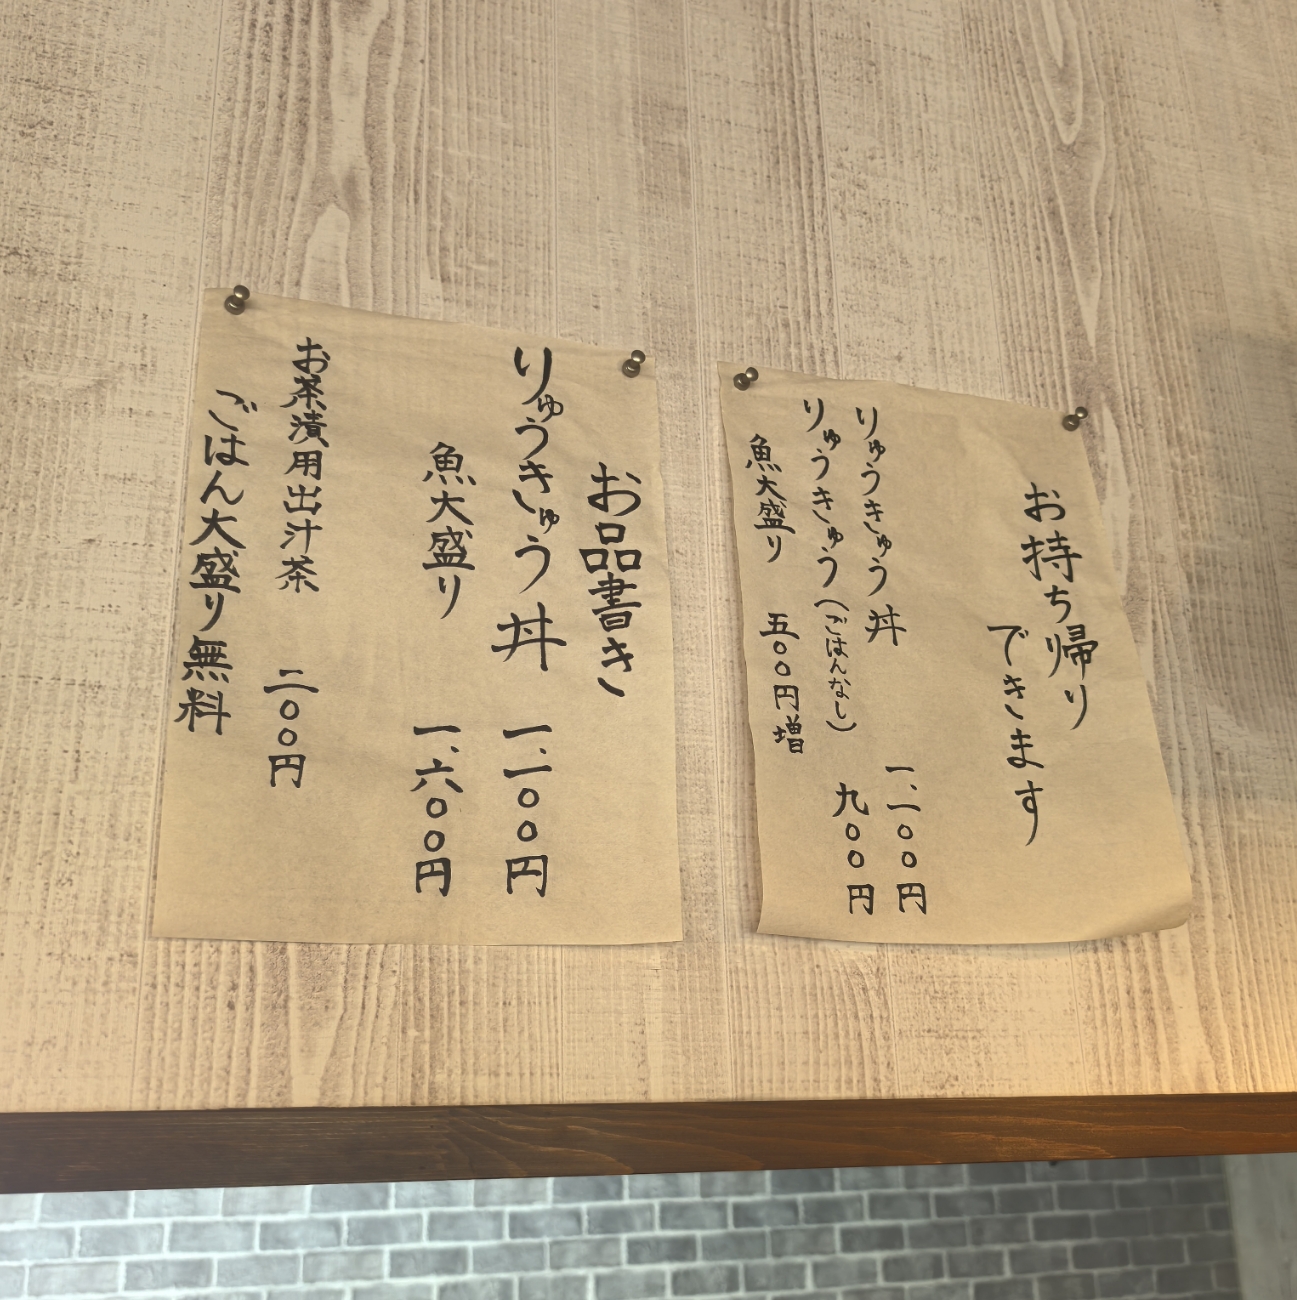 お品書き
りゅうきゅう丼 一、一〇〇円
魚大盛り 一、六〇〇円
お茶漬用出汁茶 二〇〇円
ごはん大盛り無料
お持ち帰り
できます
りゅうきゅう丼 一、一〇〇円
りゅうきゅう(ごはんなし) 九〇〇円
魚大盛り 五〇〇円増